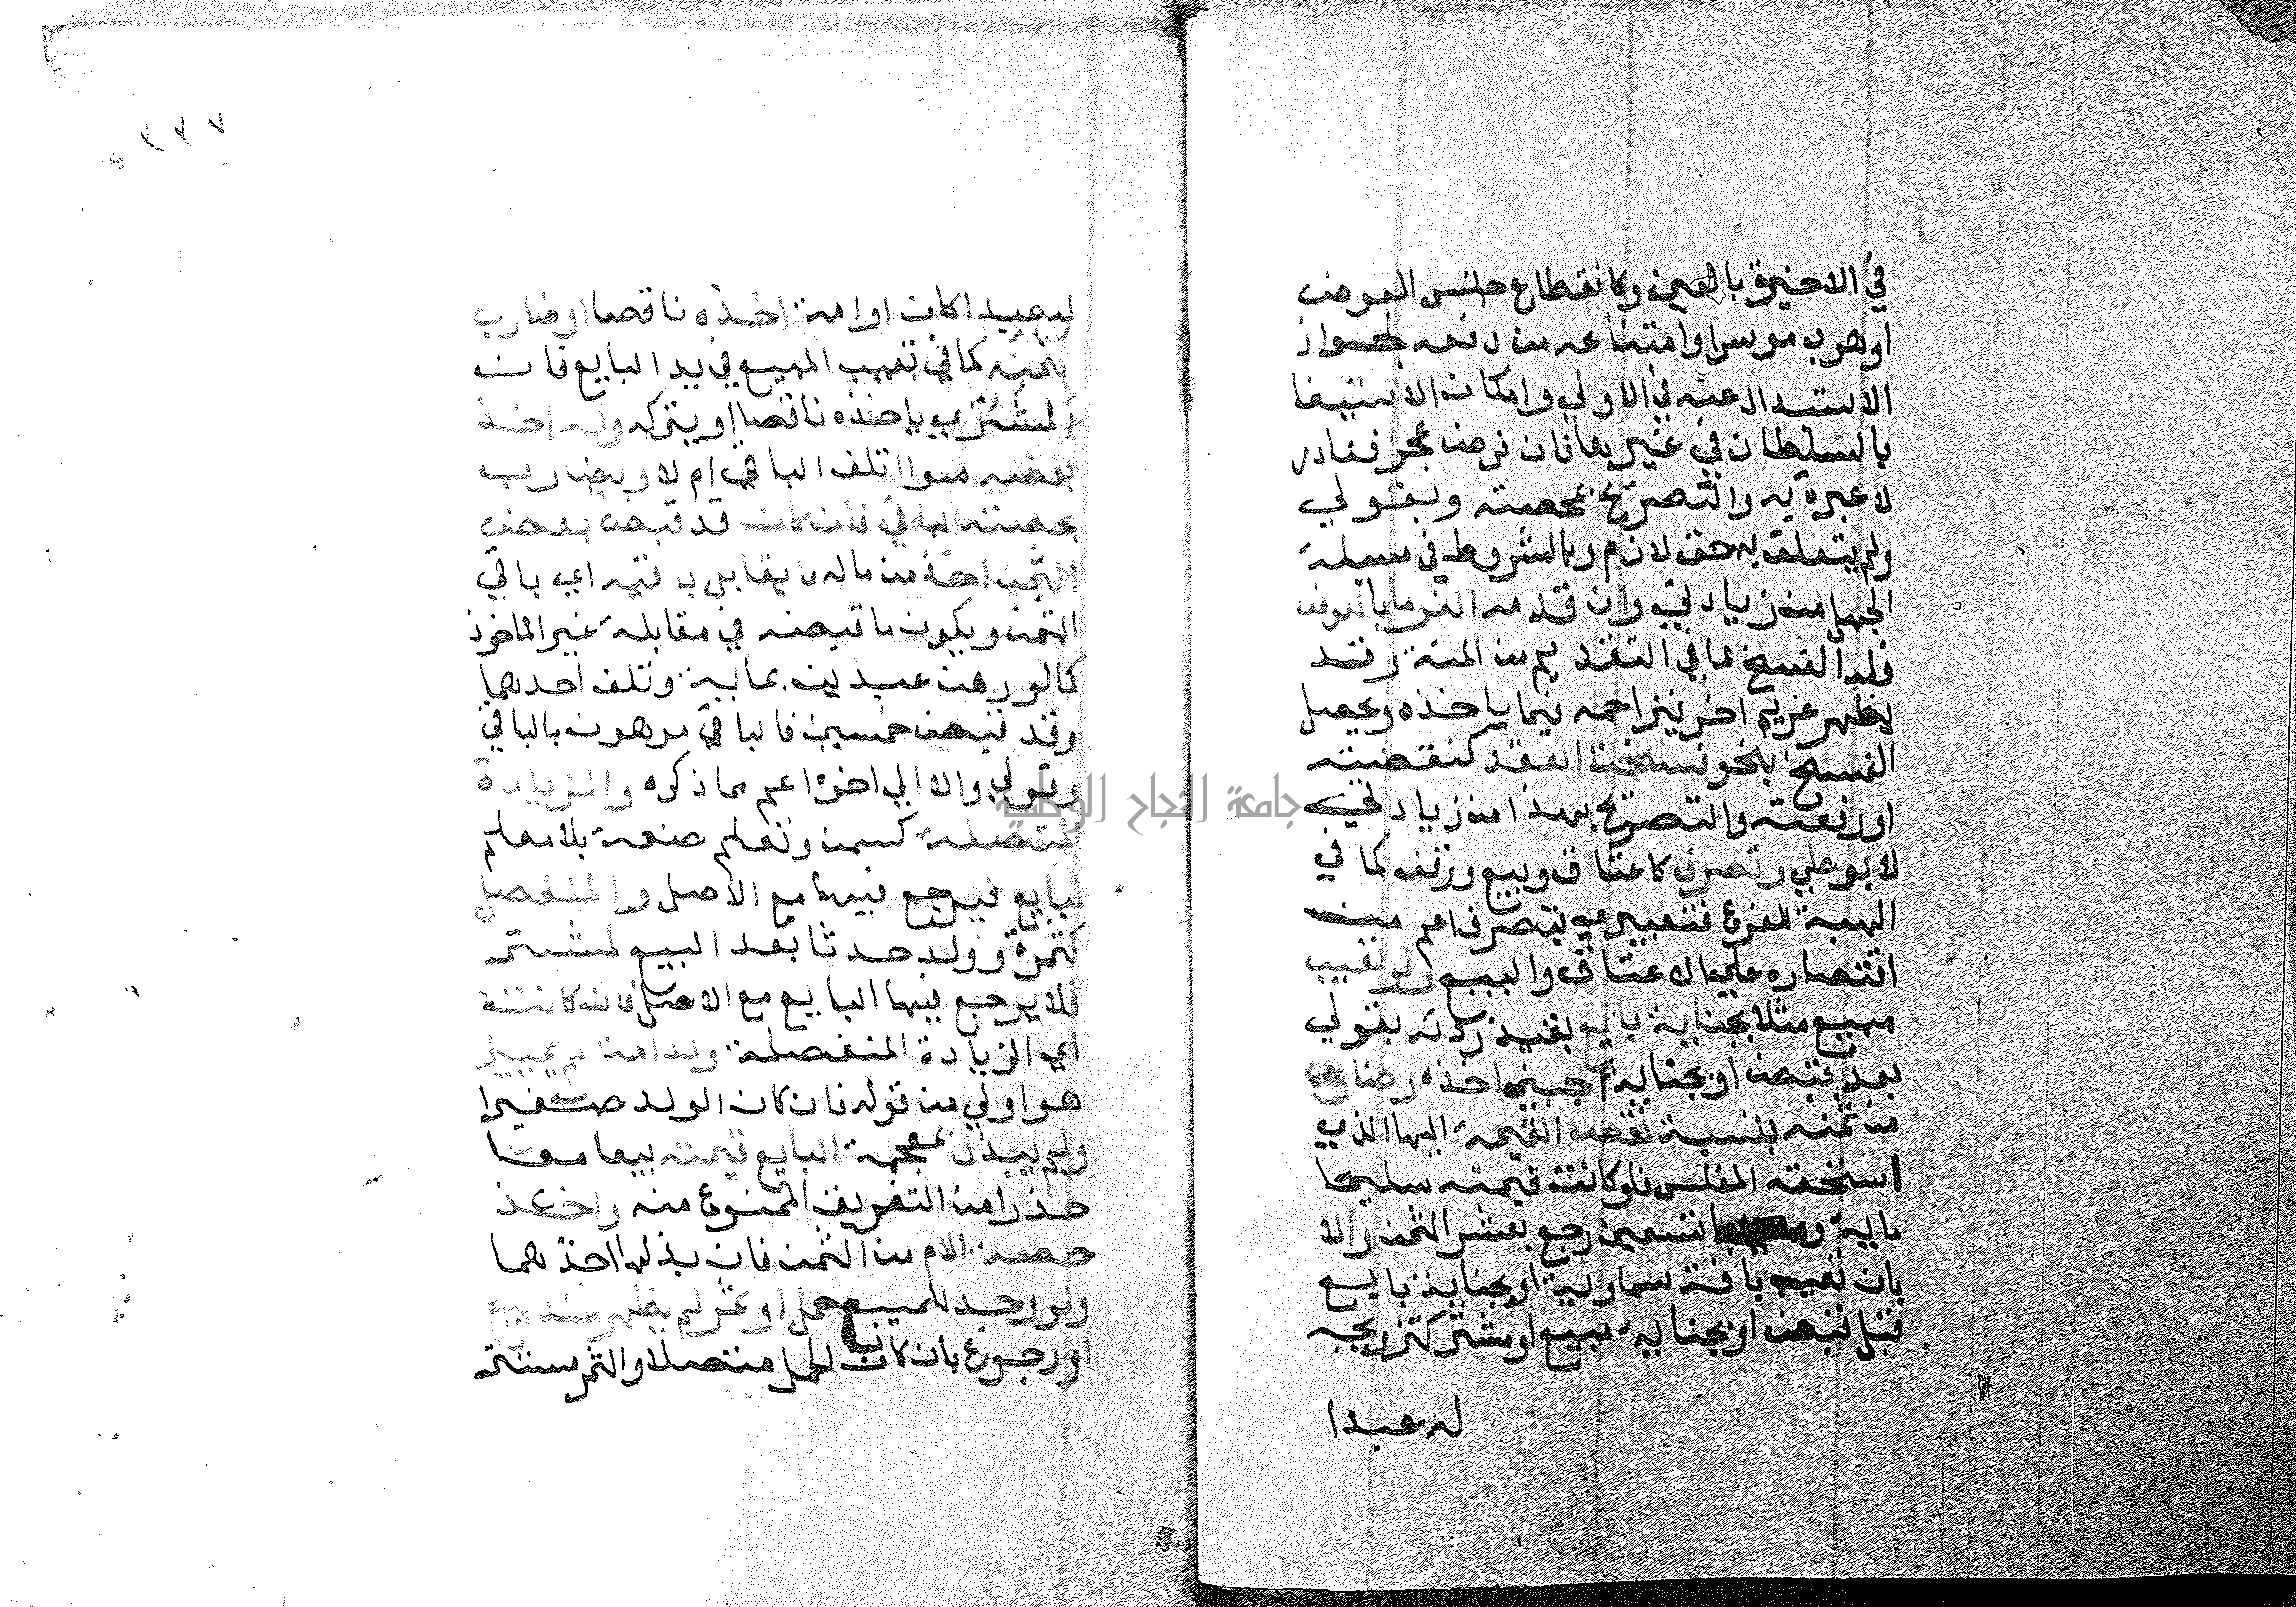 في الاخيرة بالعين وكانقطاع جنس العوض
او هرب موسرا وامتناعه من دفعه لجواز
الاستبدال عنه في الاولي وامكان الاستيفا
بالسلطان في غيرها فان فرض عجز فنادر
لا عبرة به والتصريح بحصته وبقولي
ولم يتعلق به حق لازم وبالشروط في مسيلة
الجهل من زيادتي وان قدمه الغرما بالعوض
فله الفسخ لما في التقديم من المنة وقد
يظهر غريم اخر فيزاحمه فيما ياخذه ويحصل
الفسخ بنحو فسخت العقد كنقضته
او رفعته والتصريح بهذا من زيادتي
لا بوطي وتصرف كاعتاق وبيع ووقف كما في
الهبة للفرع فتعبيري بتصرف اعم من
اقتصاره علي الاعتاق والبيع ولو تعيب
مبيع مثلا بجناية بايع بقيد زدته بقولي
بعد قبض او بجناية اجنبي اخذه وضارب
من ثمنه بنسبة نقص القيمة اليها الذي
استحقه المفلس فلو كانت قيمته سليما
ماية تسعين رجع بعشر الثمن والا
بان تعيب بافة سماوية او بجناية بايع
قبل قبض او بجناية مبيع او مشتر كتزويجه
له عبدا
٢٢٧
له عبدا كان او امة اخذه ناقصا او ضارب
بثمنه كما في تعيب المبيع في يد البايع فان
المشتري ياخذه ناقصا او يتركه وله اخذ
بعضه سوا اتلف الباقي ام لا ويضارب
بحصته الباقي فان كان قد قبض بعض
الثمن اخذ من ماله ما يقابل باقيه اي باقي
الثمن ويكون ما قبضه في مقابلة غير الماخوذ
كما لو رهن عبدين بماية وتلف احدهما
وقد قبض خمسين فالباقي مرهون بالباقي
وقولي والا الي اخره اعم مما ذكره والزيادة
المتصلة كسمن وتعلم صنعة بلا معلم
لبايع فيرجع فيها مع الاصل والمنفصل
كثمرة وولد حدثا بعد البيع لمشتر
فلا يرجع فيها البايع مع الاصل فان كانت
اي الزيادة المنفصلة ولد امة لم يميز
هو اولي من قوله فان كان الولد صغيرا
ولم يبذل بمعجمة البايع قيمته بيعا معا
حذرا من التفريق الممنوع منه واخذ
حصة الام من الثمن فان بذلها اخذهما
ولو وجد للمبيع حمل او ثمر لم يظهر عند بيع
او رجوع بان كان الحمل منفصلا والثمر مستتر
جامعة النجاح الوطنية